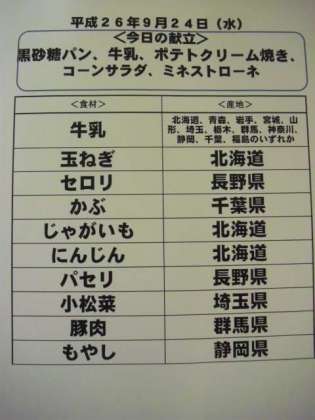 平成26年9月24日（水）
＜今日の献立＞
黒砂糖パン、牛乳、ポテトクリーム焼き、
コーンサラダ、ミネストローネ
＜食材＞ ＜産地＞
牛乳 北海道、青森、岩手、宮城、山
形、埼玉、栃木、群馬、神奈川、
静岡、千葉、福島のいずれか
玉ねぎ 北海道
セロリ 長野県
かぶ 千葉県
じゃがいも 北海道
にんじん 北海道
パセリ 長野県
小松菜 埼玉県
豚肉 群馬県
もやし 静岡県